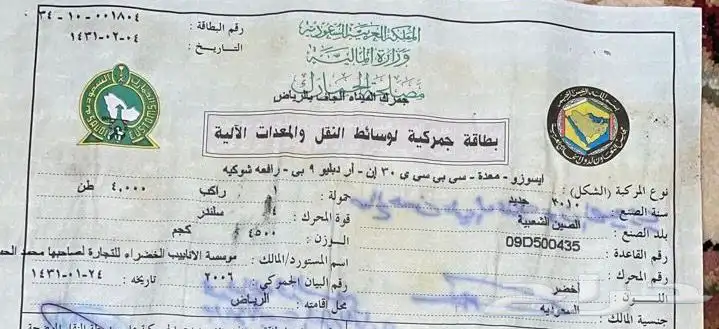 المملكة العربية السعودية
وزارة المالية
مصلحة الجمارك
جمرك الميناء الجاف بالرياض
رقم البطاقة : ٠٠١٨٠٤-١٠-٣٤
التاريخ : ٠٤-٠٢-١٤٣١
بطاقة جمركية لوسائط النقل والمعدات الآلية
نوع المركبة (الشكل) : ايسوزو - معدة - سي بي سي ي ٣٠ إن - أر دبليو ٩ بي - رافعه شوكيه
سنة الصنع : ٢٠١٠ جديد
حمولة : ١ راكب ٤,٠٠٠ طن
بلد الصنع : الصين الشعبية
قوة المحرك : ٤ سلندر
رقم القاعدة : 09D500435
الوزن : ٤٥٠٠ كجم
رقم المحرك :
اسم المستورد/المالك : موسسة الانابيب الخضراء للتجارة لصاحبها محمد
اللون : أخضر
رقم البيان الجمركي : ٢٠٠٦ تاريخه : ٢٤-٠١-١٤٣١
جنسية المالك : السعوديه
محل إقامته : الرياض
حراج